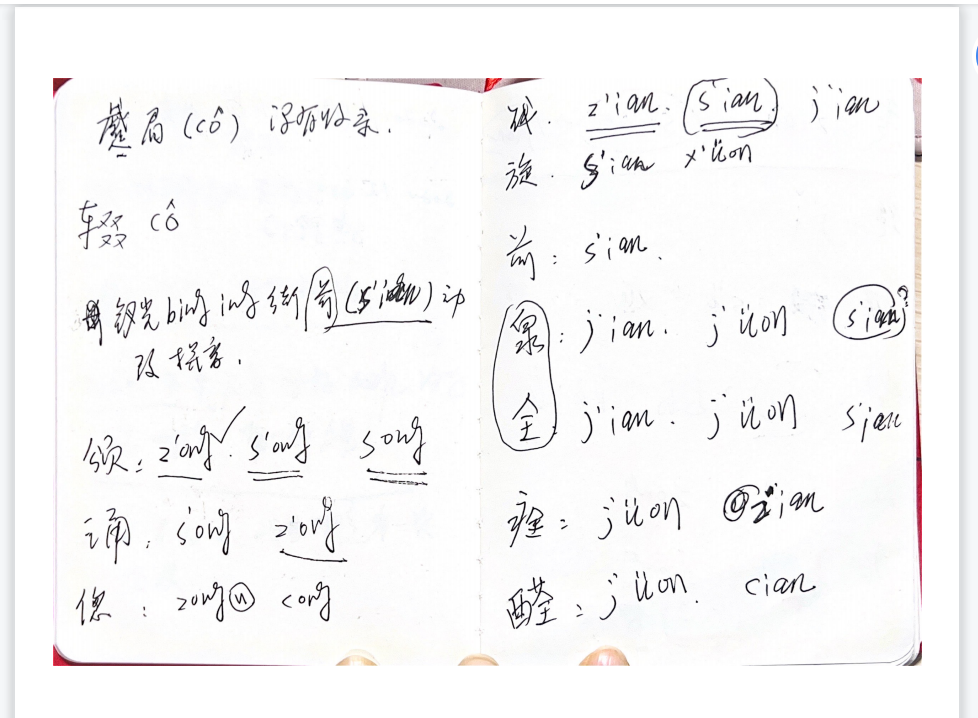 局 (cô) 没有收录.
辍 cô
光 bing ing 街 前 (s'ian)
改
颂: z'ong. s'ong song
诵: s'ong z'ong
偬: zong cong
z'ian. s'ian. j'ian
旋. s'ian x'üon
前: s'ian.
泉: j'ian. j'üon s'ian?
全 j'ian. j'üon s'ian
痊: j'üon z'ian
醛: j'üon. cian